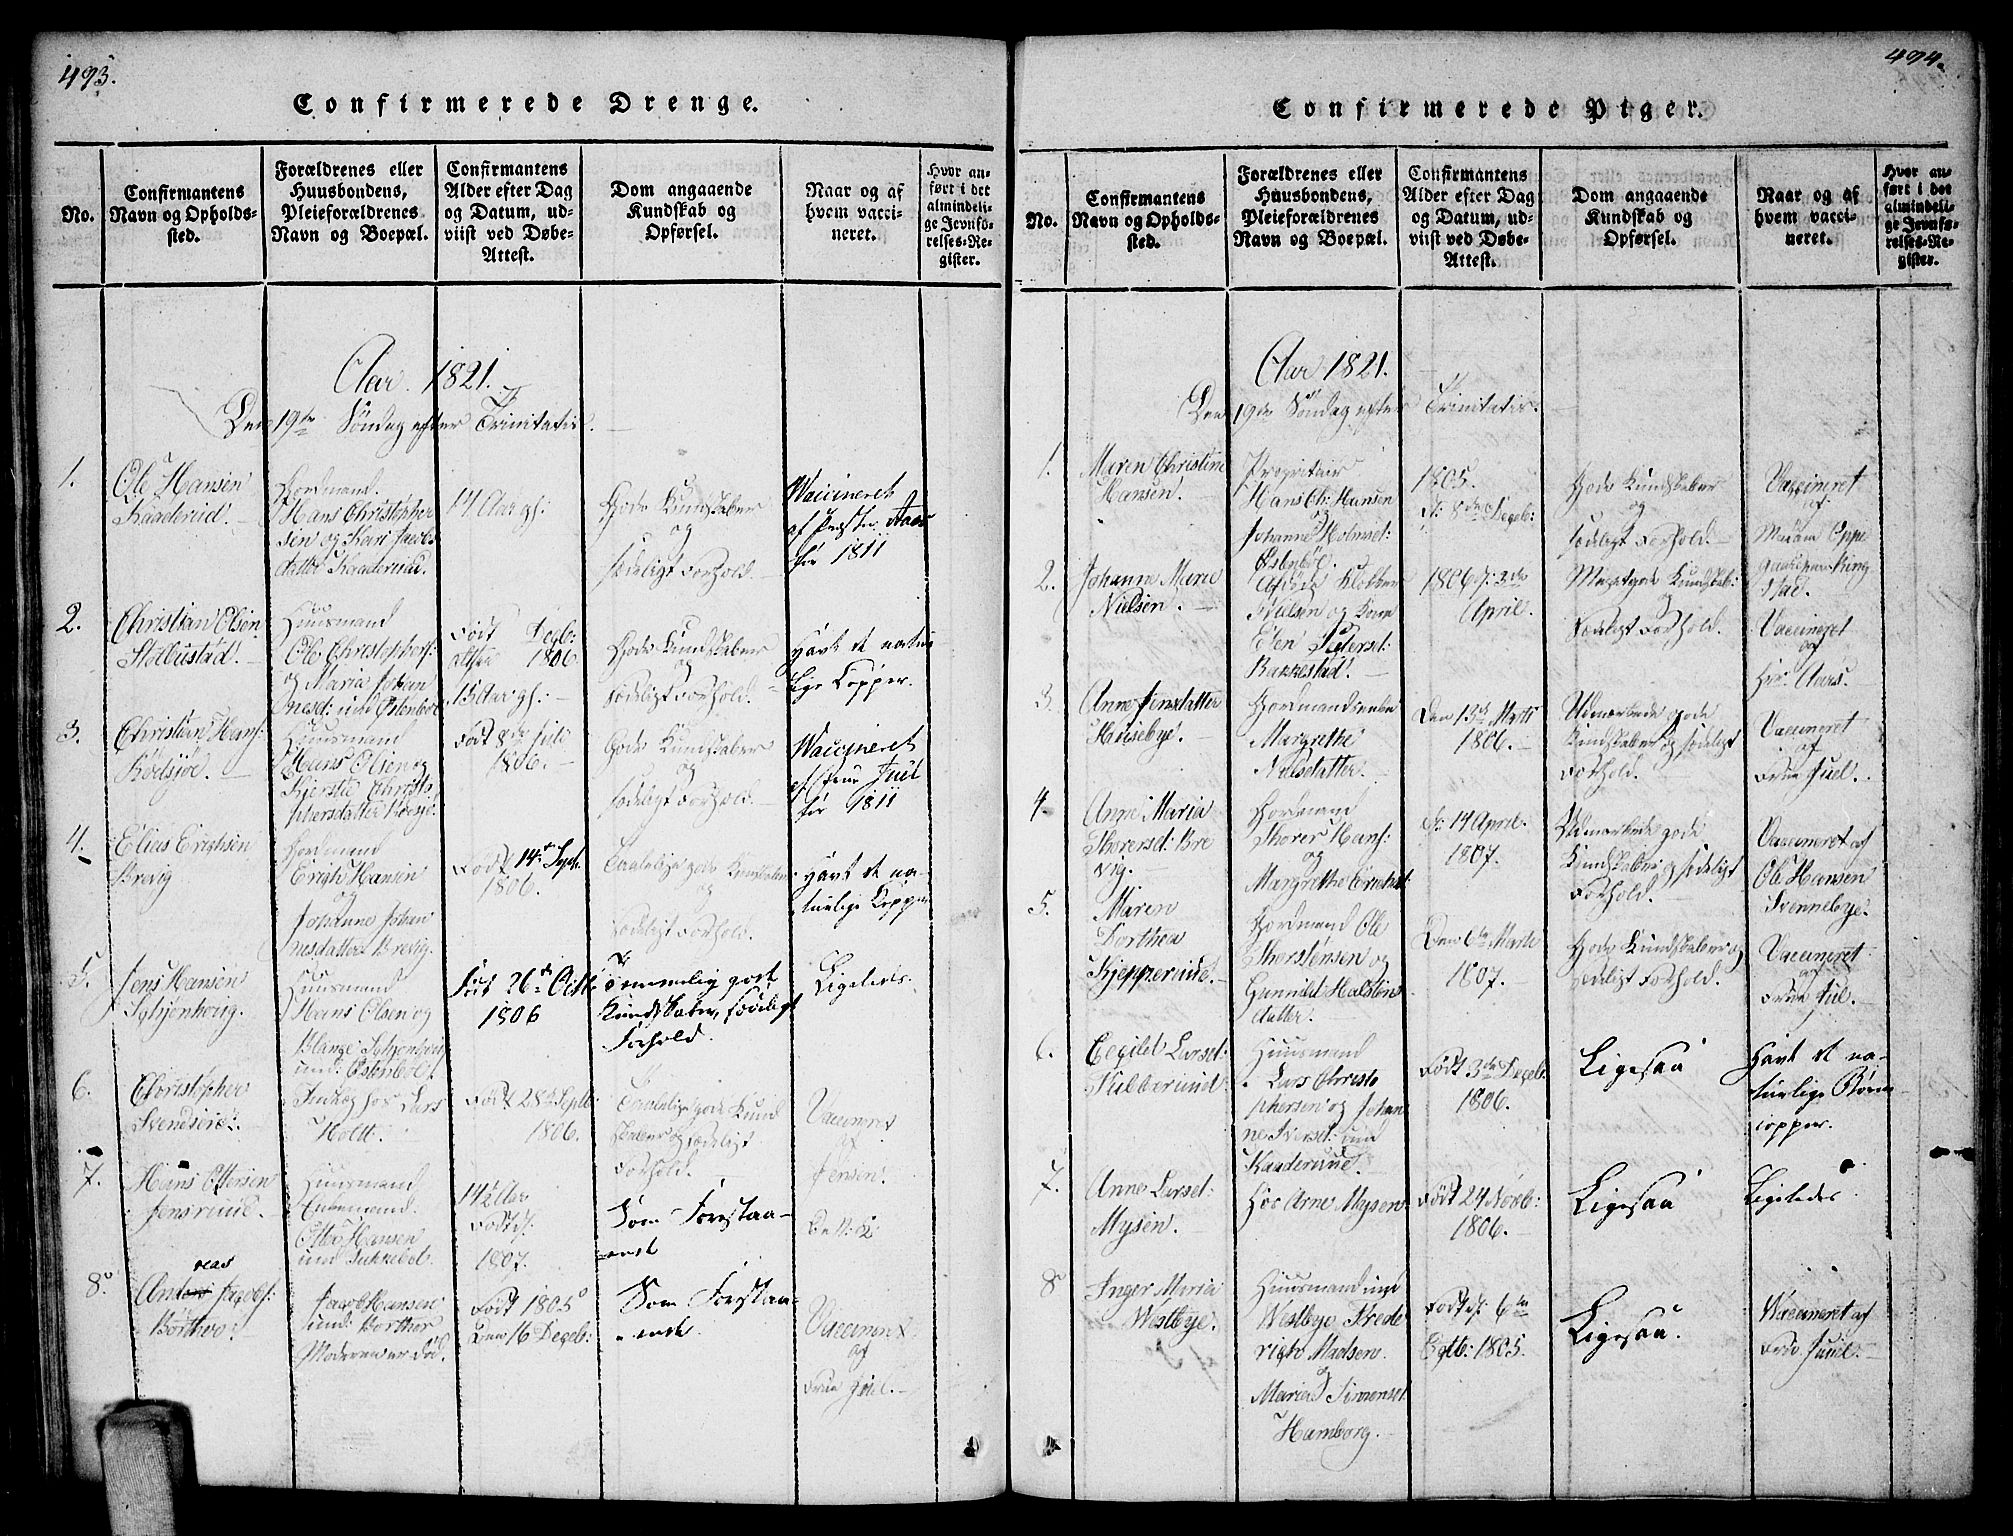 493.
Confirmerede Drenge.
No.
Confirmantens
Navn og Opholds-
sted.
Forældrenes eller
Huusbondens,
Pleieforældrenes
Navn og Boepæl.
Confirmantens
Alder efter Dag
og Datum, ud-
viist ved Døbe-
Attest.
Dom angaaende
Kundskab og
Opførsel.
Naar og af
hvem vacci-
neret.
Hvor an-
ført i det
almindeli-
ge Jevnfø-
relses-Re-
gister.
Aar 1821.
Den 19de Söndag efter Trinitatis.
1.
Ole Hansen
Kaaderud.
Gordmand
Hans Christopher
sen og Kari Jacobs
datter Kaaderud.
14 Aar gl:
Gode Kundskaber
og
sædeligt Forhold.
Vaccineret
af
før 1811
2.
Christian Olsen
Huusmand
Ole Christophers:
og Maria Johan
nesd: und Østenbøl
Født Decb:
1806
15 Aar gl:
Gode Kundskaber
og
sædeligt Forhold.
Havt de natur
lige Kopper.
3.
Christian Hans:
Rödsjöe.
Huusmand
Hans Olsen og
Kjerstie Christo
phersdatter
Født 8de Juli
1806.
Gode Kundskaber
og
sædeligt Forhold.
Vaccineret
af Frue Juel
før 1811
4.
Elias Erichsen
Brevig
Gordmand
Erich Hansen
og
Johanne Johan
nesdatter Brevig.
Født 14de Septb.
1806.
Taalelige gode Kundskaber
og
sædeligt Forhold.
Havt de na-
turlige Kopper
5.
Jens Hansen
Huusmand
Hans Olsen og
und: Østenbøl
Født 26de Octb:
1806
Temmelig godt
Kundskaber, sædeligt
Forhold.
Ligeledes.
6.
Christopher
Svendsen:
hos Lars
Holth.
Født 28de Septb:
1806.
Taalelige gode Kund
skaber og sædeligt
Forhold.
Vaccineret
af
Jensen.
7.
Hans Ottersen
Jensrud.
Huusmand
Enkemand
Otter Hansen
14½ Aar
Født
1807.
Som Forstaa-
ende
8.
reas
Anders Jacobs:
Borther:
Jacob Hansen
und: Borther
Moderen er Död.
Født 1805
Den 16 Decb:
Som Forstaa-
ende.
Vaccineret
af
Frue Juel.
494.
Confirmerede Piger.
No.
Confirmantens
Navn og Opholds-
sted.
Forældrenes eller
Huusbondens,
Pleieforældrenes
Navn og Boepæl.
Confirmantens
Alder efter Dag
og Datum, ud-
viist ved Døbe-
Attest.
Dom angaaende
Kundskab og
Opførsel.
Naar og af
hvem vacci-
neret.
Hvor an-
ført i det
almindeli-
ge Jevnfø-
relses-Re-
gister.
Aar 1821.
Den 19de Söndag efter Trinitatis.
1.
Maren Christine
Hansen.
Proprietair
Hans Ch: Hansen
og
Johanne Holmsd:
Østenbøl.
1805.
d: 8de Decb:
Gode Kundskaber
og
sædeligt Forhold.
Vaccineret
af
Madam
2.
Johanne Marie
Nielsen.
Nielsen og Kone
Elen Petersd:
Bakkestad.
1806 d: 3de
April.
Meget gode Kundskab:
og
sædeligt Forhold.
Vaccineret
af
Hr: Aars.
3.
Anne Jensdatter
Huusebye.
Gordmandsenke
Margrethe
Nielsdatter.
Den 13de Marts
1806.
Udmærkede gode
Kundskaber og sædeligt
Forhold.
Vaccineret
af
Frue Juel.
4.
Anne Maria
Thorersd: Bre
vig.
Gordmand
Thorer Hans:
og
Margrethe Erichsd:
d: 14 April.
1807.
Udmærkede gode
Kundskaber og sædeligt
Forhold.
Vaccineret af
Ole Hansen
Svennebye.
5.
Maren
Dorthea
Kjepperud.
Gordmand Ole
Thorstensen og
Gunnild Halstens
datter.
Den 6te Marts
1807.
Gode Kundskaber og
sædeligt Forhold.
Vaccineret
af
Frue Juel.
6.
Cecilie Larsd:
Huusmand
Lars Christo
phersen og Johan
ne Iversd: und
Kaaderud.
Født 3de Decb:
1806.
Ligesaa
Havt de na-
turlige Børne
copper.
7.
Anne Larsd:
Mysen.
Hos Arne Mysen
Født 24 Novb:
1806.
Ligesaa
Ligeledes
8
Inger Maria
Westbye.
Huusmand und
Westbye Frede
rich Madsen
og
Maria Simensd:
Hamborg.
Født d: 6te
Octb: 1805.
Ligesaa.
Vaccineret af
Frue Juul.